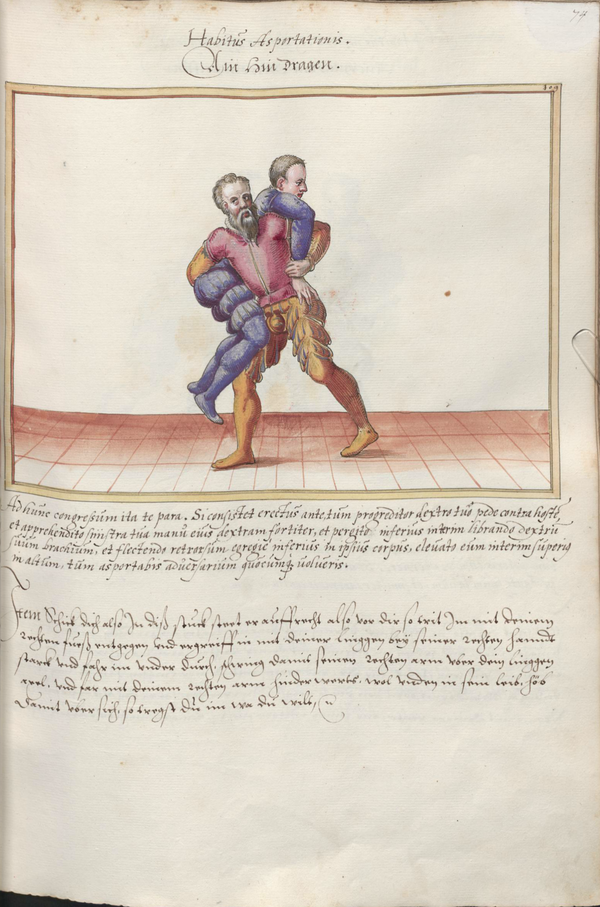 74
Habitus Asportationis.
Ain Hin Dragen.
109
Ad hunc congressum ita te para. Si consistet erectus ante, tum progreditor dextro tuo pede contra hostē,
et apprehendito sinistra tua manu eius dextram fortiter, et pereito inferius interim librando dextrū
suum brachium, et flectendo retrorsum egregie inferius in ipsius corpus, eleuato eum interim superius
in altum, tum asportabis aduersarium quocunq uolueris.
Item Schick dich also In diß stuck steet er auffrecht also vor dir so trit Im mit deinem
rechten fuesß entgegen vnd ergreiff in mit deiner linggen bey seiner rechten handt
starck vnd far im vnder durch, schwing damit seinen rechten arm vber dein linggen
axel, vnd far mit deinem rechten arm hinderwerts, wol vnden in sein leib, heb
damit vbersich, so tregst du in wa du wilt,